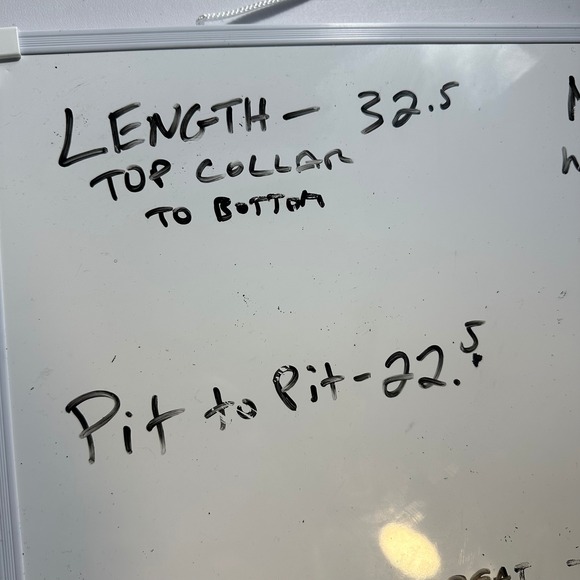 LENGTH - 32.5
TOP COLLAR
TO BOTTOM
Pit to Pit - 22.5